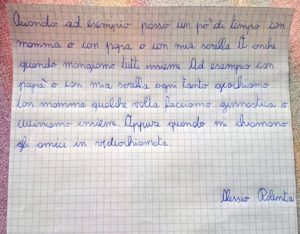 Quando ad esempio passo un po' di tempo con
mamma o con papà o con mia sorella. O anche
quando mangiamo tutti insieme. Ad esempio con
papà o con mia sorella ogni tanto giochiamo.
Con mamma qualche volta facciamo ginnastica o
cuciniamo insieme. Oppure quando mi chiamano
gli amici in videochiamata.
Alessio Polenta